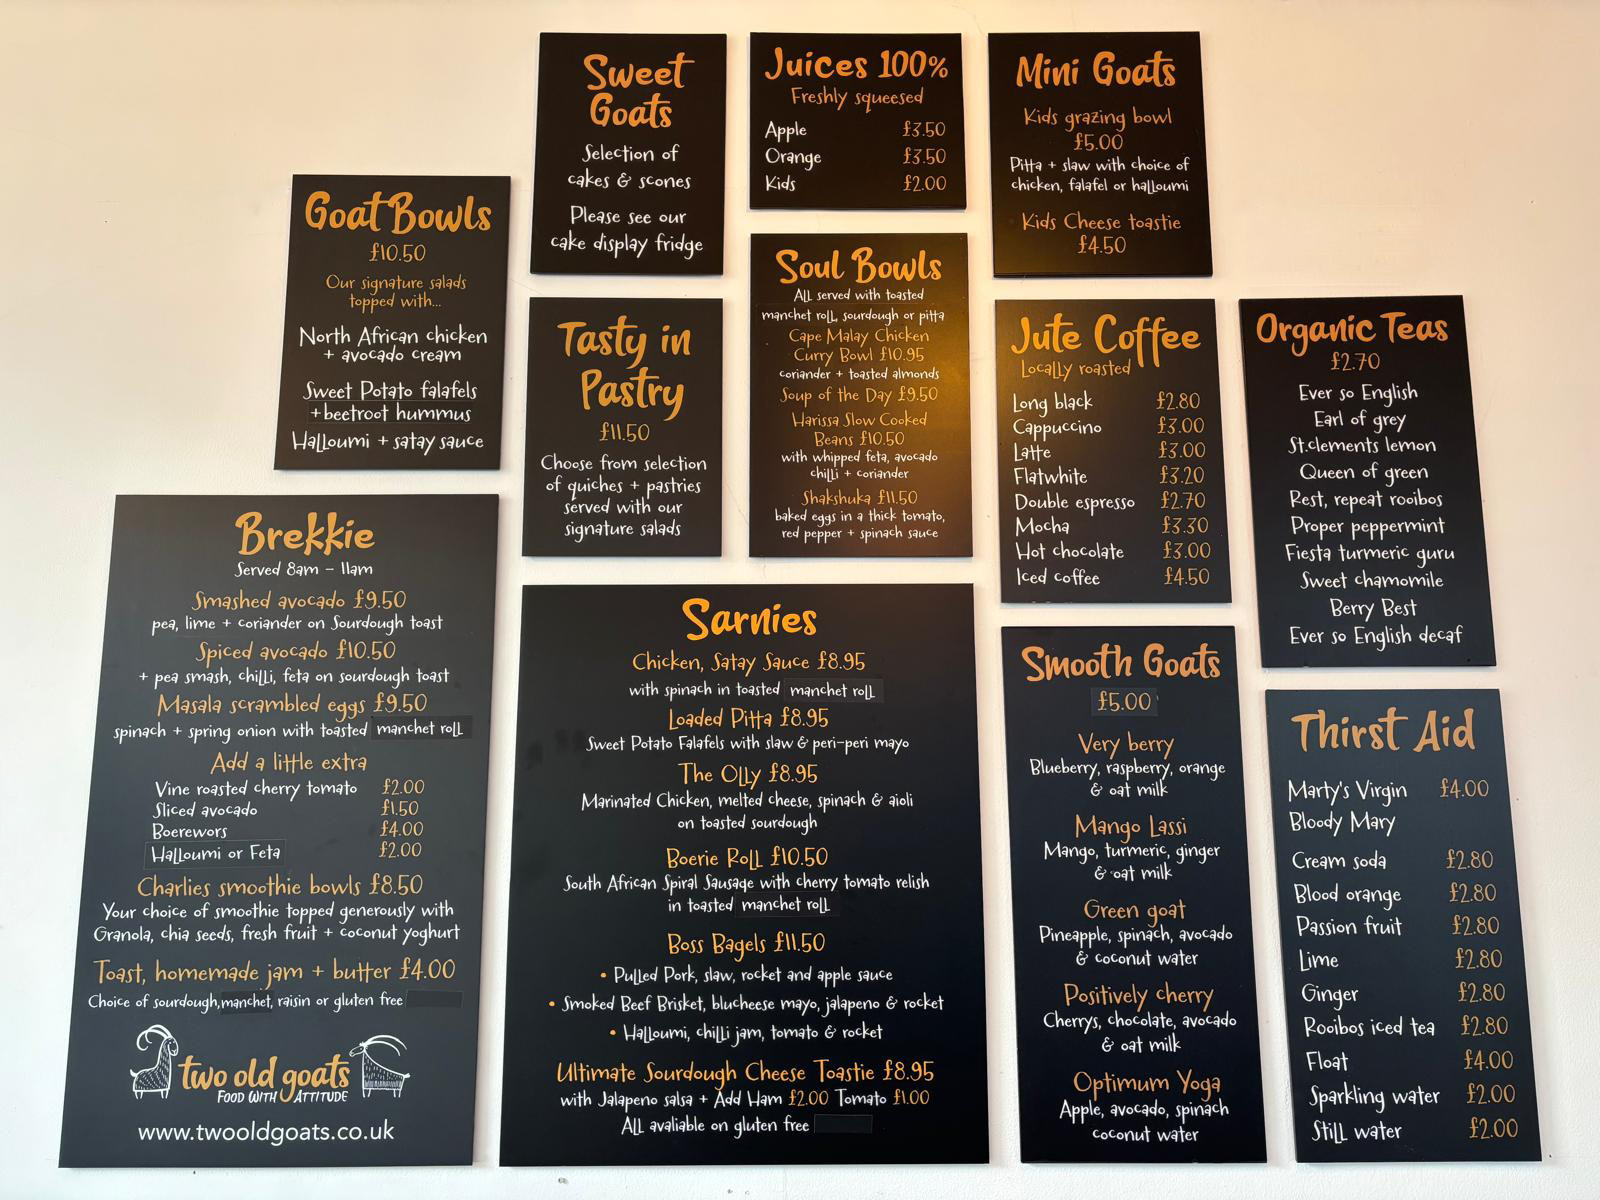 Sweet
Goats
Selection of
cakes & scones
Please see our
cake display fridge
Juices 100%
Freshly squeesed
Apple £3.50
Orange £3.50
Kids £2.00
Mini Goats
Kids grazing bowl
£5.00
Pitta + slaw with choice of
chicken, falafel or halloumi
Kids Cheese toastie
£4.50
Goat Bowls
£10.50
Our signature salads
topped with...
North African chicken
+ avocado cream
Sweet Potato falafels
+beetroot hummus
Halloumi + satay sauce
Tasty in
Pastry
£11.50
Choose from selection
of quiches + pastries
served with our
signature salads
Soul Bowls
All served with toasted
manchet roll, sourdough or pitta
Cape Malay Chicken
Curry Bowl £10.95
coriander + toasted almonds
Soup of the Day £9.50
Harissa Slow Cooked
Beans £10.50
with whipped feta, avocado
chilli + coriander
Shakshuka £11.50
baked eggs in a thick tomato,
red pepper + spinach sauce
Jute Coffee
Locally roasted
Long black £2.80
Cappuccino £3.00
Latte £3.00
Flatwhite £3.20
Double espresso £2.70
Mocha £3.30
Hot chocolate £3.00
Iced coffee £4.50
Organic Teas
£2.70
Ever so English
Earl of grey
St.clements lemon
Queen of green
Rest, repeat rooibos
Proper peppermint
Fiesta turmeric guru
Sweet chamomile
Berry Best
Ever so English decaf
Brekkie
Served 8am - 11am
Smashed avocado £9.50
pea, lime + coriander on Sourdough toast
Spiced avocado £10.50
+ pea smash, chilli, feta on sourdough toast
Masala scrambled eggs £9.50
spinach + spring onion with toasted manchet roll
Add a little extra
Vine roasted cherry tomato £2.00
Sliced avocado £1.50
Boerewors £4.00
Halloumi or Feta £2.00
Charlies smoothie bowls £8.50
Your choice of smoothie topped generously with
Granola, chia seeds, fresh fruit + coconut yoghurt
Toast, homemade jam + butter £4.00
Choice of sourdough, manchet, raisin or gluten free
two old goats
FOOD WITH ATTITUDE
www.twooldgoats.co.uk
Sarnies
Chicken, Satay Sauce £8.95
with spinach in toasted manchet roll
Loaded Pitta £8.95
Sweet Potato Falafels with slaw & peri-peri mayo
The Olly £8.95
Marinated Chicken, melted cheese, spinach & aioli
on toasted sourdough
Boerie Roll £10.50
South African Spiral Sausage with cherry tomato relish
in toasted manchet roll
Boss Bagels £11.50
• Pulled Pork, slaw, rocket and apple sauce
• Smoked Beef Brisket, blucheese mayo, jalapeno & rocket
• Halloumi, chilli jam, tomato & rocket
Ultimate Sourdough Cheese Toastie £8.95
with Jalapeno salsa + Add Ham £2.00 Tomato £1.00
All avaliable on gluten free
Smooth Goats
£5.00
Very berry
Blueberry, raspberry, orange
& oat milk
Mango Lassi
Mango, turmeric, ginger
& oat milk
Green goat
Pineapple, spinach, avocado
& coconut water
Positively cherry
Cherrys, chocolate, avocado
& oat milk
Optimum Yoga
Apple, avocado, spinach
coconut water
Thirst Aid
Marty's Virgin £4.00
Bloody Mary
Cream soda £2.80
Blood orange £2.80
Passion fruit £2.80
Lime £2.80
Ginger £2.80
Rooibos iced tea £2.80
Float £4.00
Sparkling water £2.00
Still water £2.00